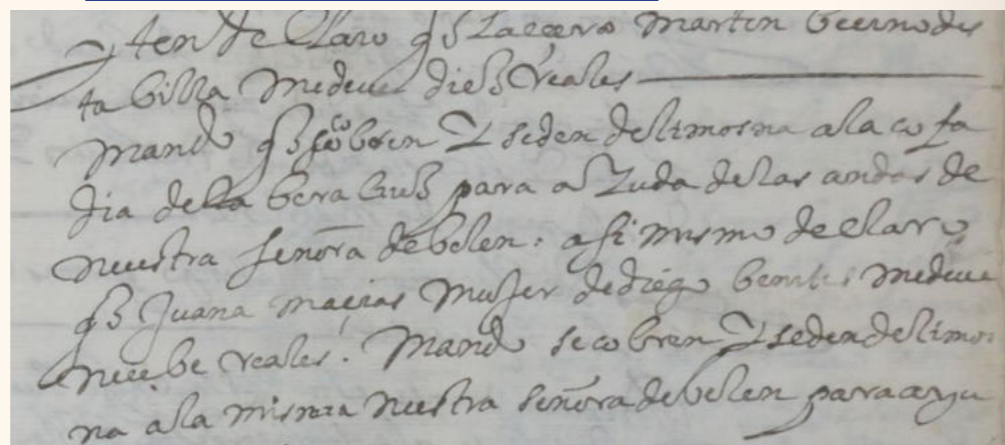 yten declaro q̃ Laçaro Martin beçino des
ta billa me deue dies Reales
mando q̃ se cobren Y se den de limosna a la cofa
dia de la bera crus para aYuda de las andas de
nuestra señora de belen. asi mismo declaro
q̃ Juana maçias Muger de diego me deue
nuebe reales. Mando se cobren Y se den de limos
na a la misma nuestra señora de belen para ayu